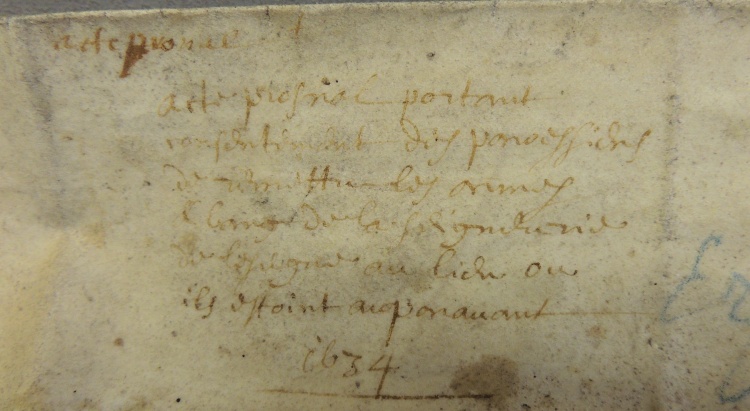 acte
acte prosnal portant
consentement des paroessiens
de remettre les armes
& banc de la seigneurie
de au lieu ou
ils estoint auparauant
1634